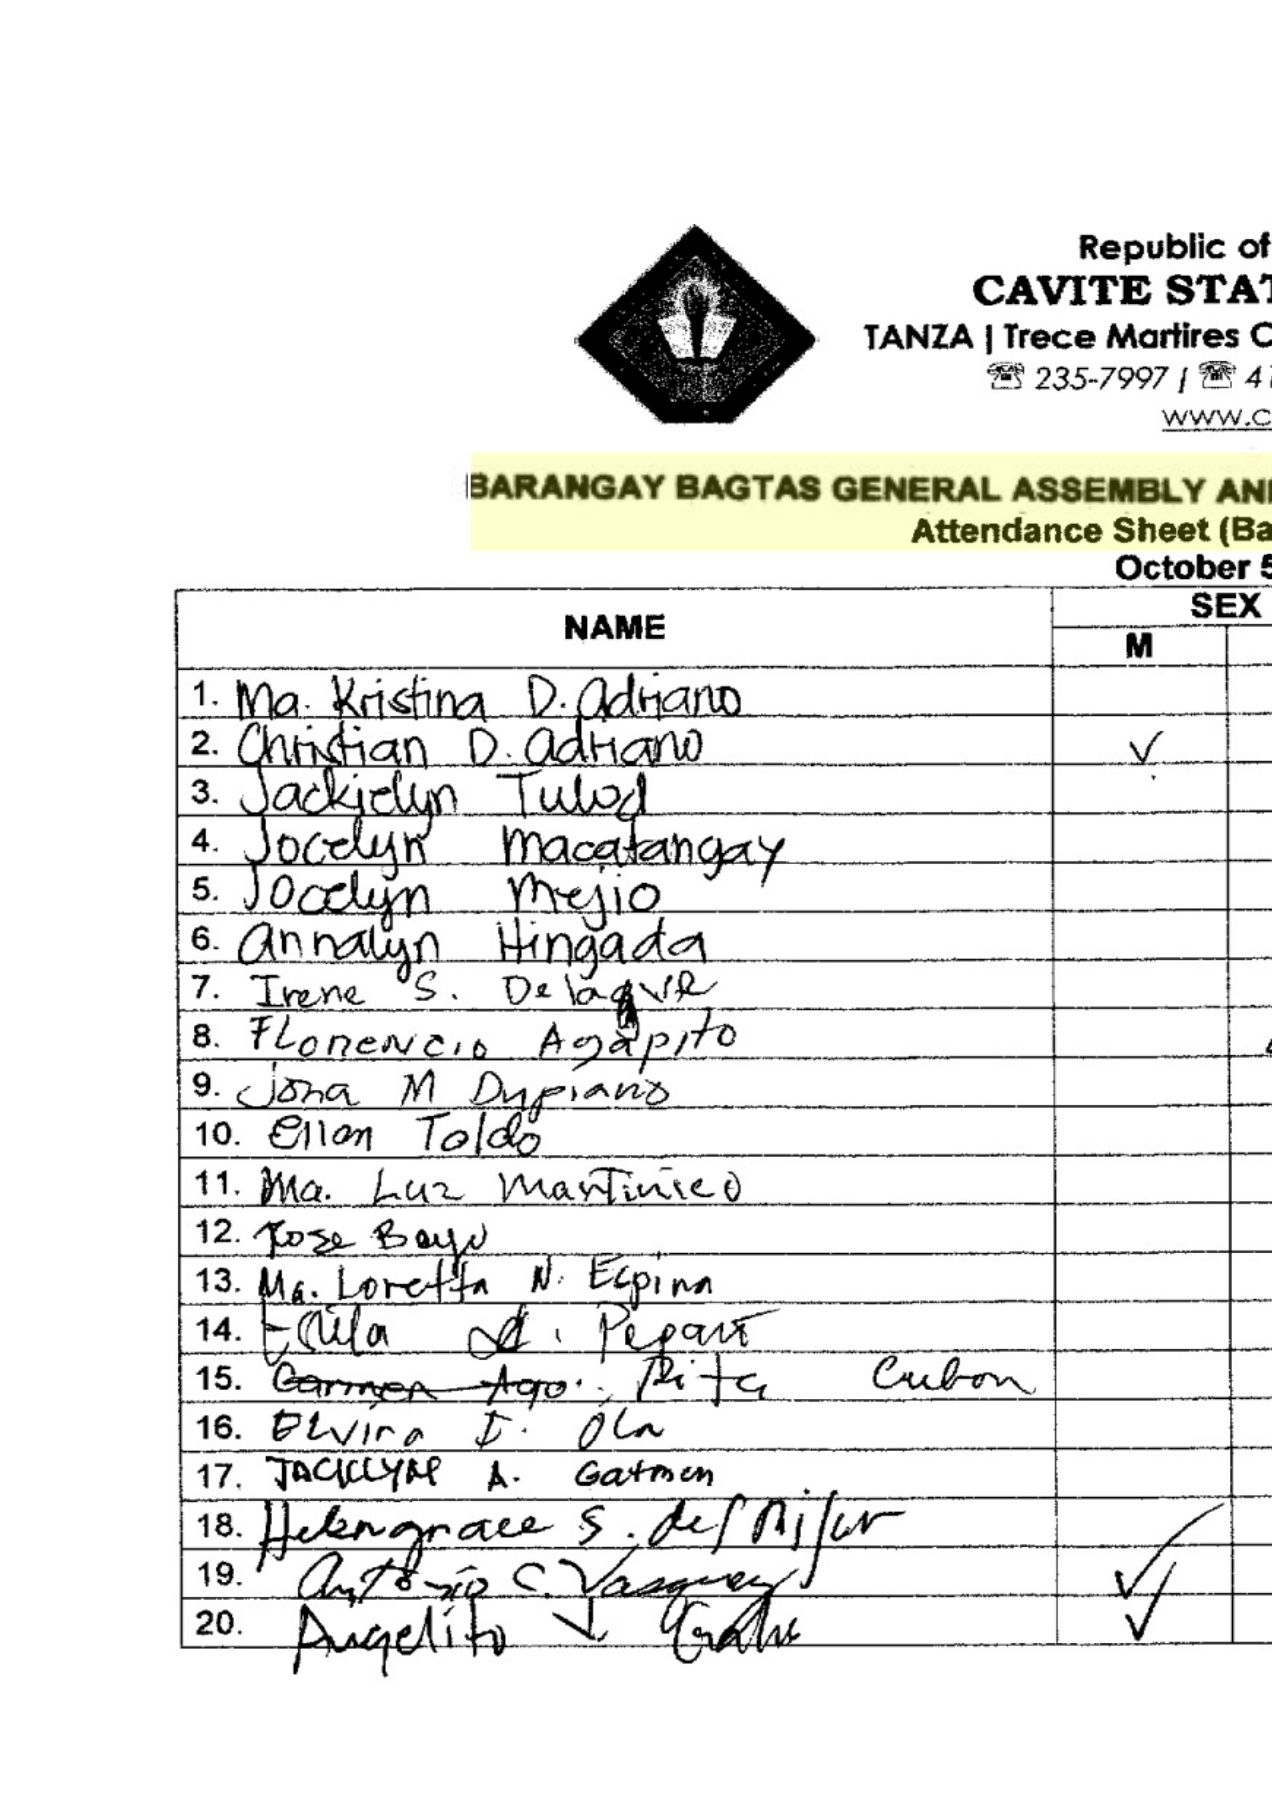 Republic of
CAVITE STAT
TANZA | Trece Martires C
☏ 235-7997 / ☏ 41
www.c
BARANGAY BAGTAS GENERAL ASSEMBLY AN
Attendance Sheet (Ba
October 5
NAME SEX
M
1. Ma. Kristina D. Adriano
2. Christian D. Adriano ✓
3. Jackielyn Tulod
4. Jocelyn Macatangay
5. Jocelyn Mejio
6. Annalyn Hingada
7. Irene S.
8. Florencio Agapito
9. Jona M Dypiano
10. Ellen Toldo
11. Ma. Luz Martinico
12. Rose Bayo
13. Ma. Loretta N. Espina
14.
15. Carmen Ago Rita Cubon
16. Elvira I. Ola
17. JACKLYNE A. Gatmen
18. Helengrace S. del
19. Antonio C. Vasquez ✓
20. Angelito ✓